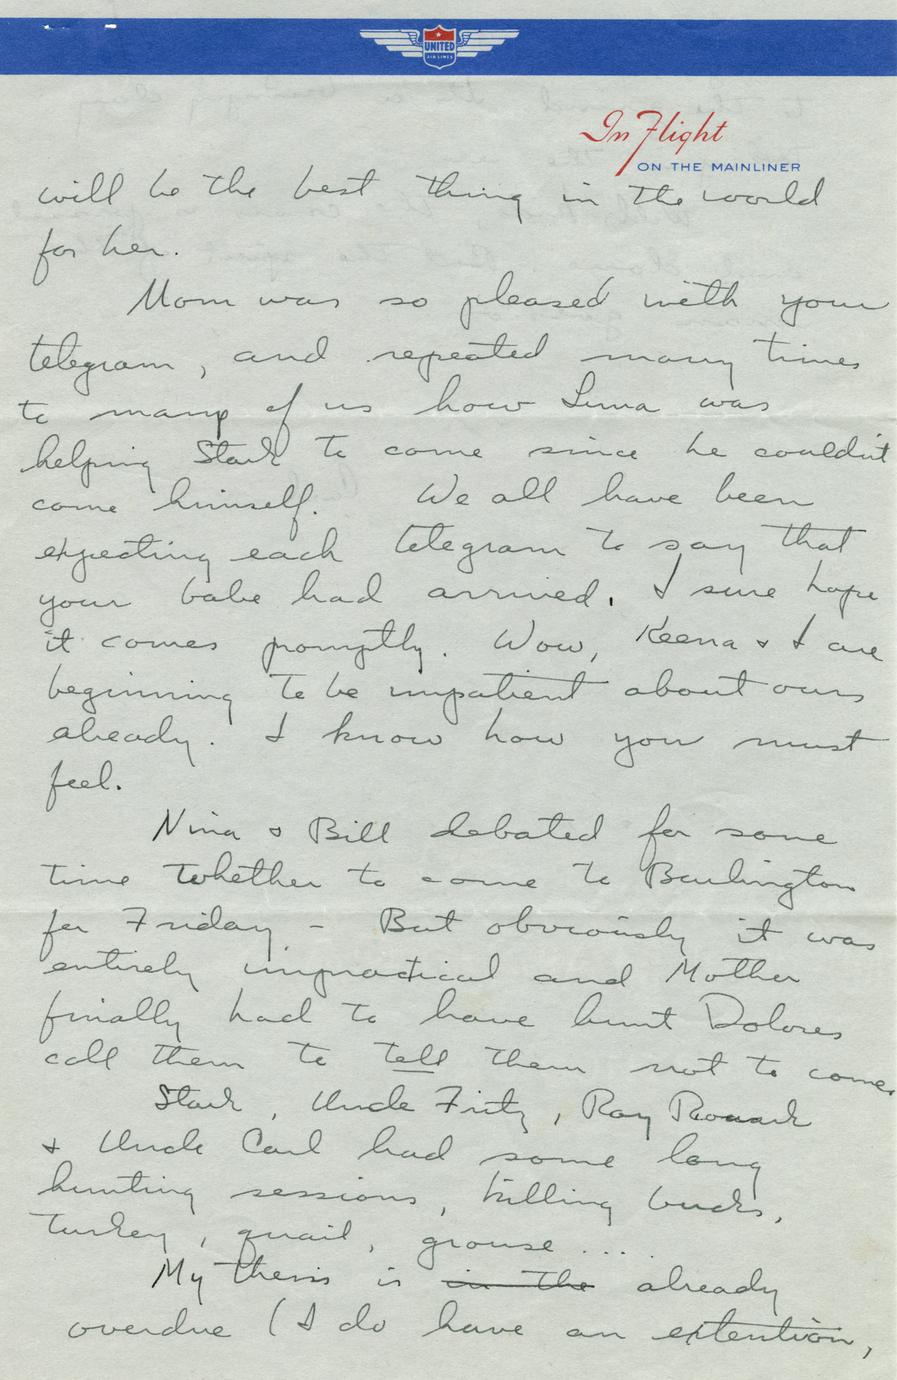 UNITED
AIR LINES
In Flight
ON THE MAINLINER
will be the best thing in the world
for her.
Mom was so pleased with your
telegram, and repeated many times
to many of us how Luna was
helping Stark to come since he couldn't
come himself. We all have been
expecting each telegram to say that
your babe had arrived. I sure hope
it comes promptly. Wow, Keena & I are
beginning to be impatient about ours
already. I know how you must
feel.
Nina & Bill debated for some
time whether to come to Burlington
for Friday - But obviously it was
entirely impractical and Mother
finally had to have Aunt Dolores
call them to tell them not to come.
Stark, Uncle Fritz, Ray
& Uncle Carl had some long
hunting sessions, killing bucks,
turkey, quail, grouse ....
My thesis is in the already
overdue (I do have an extention,